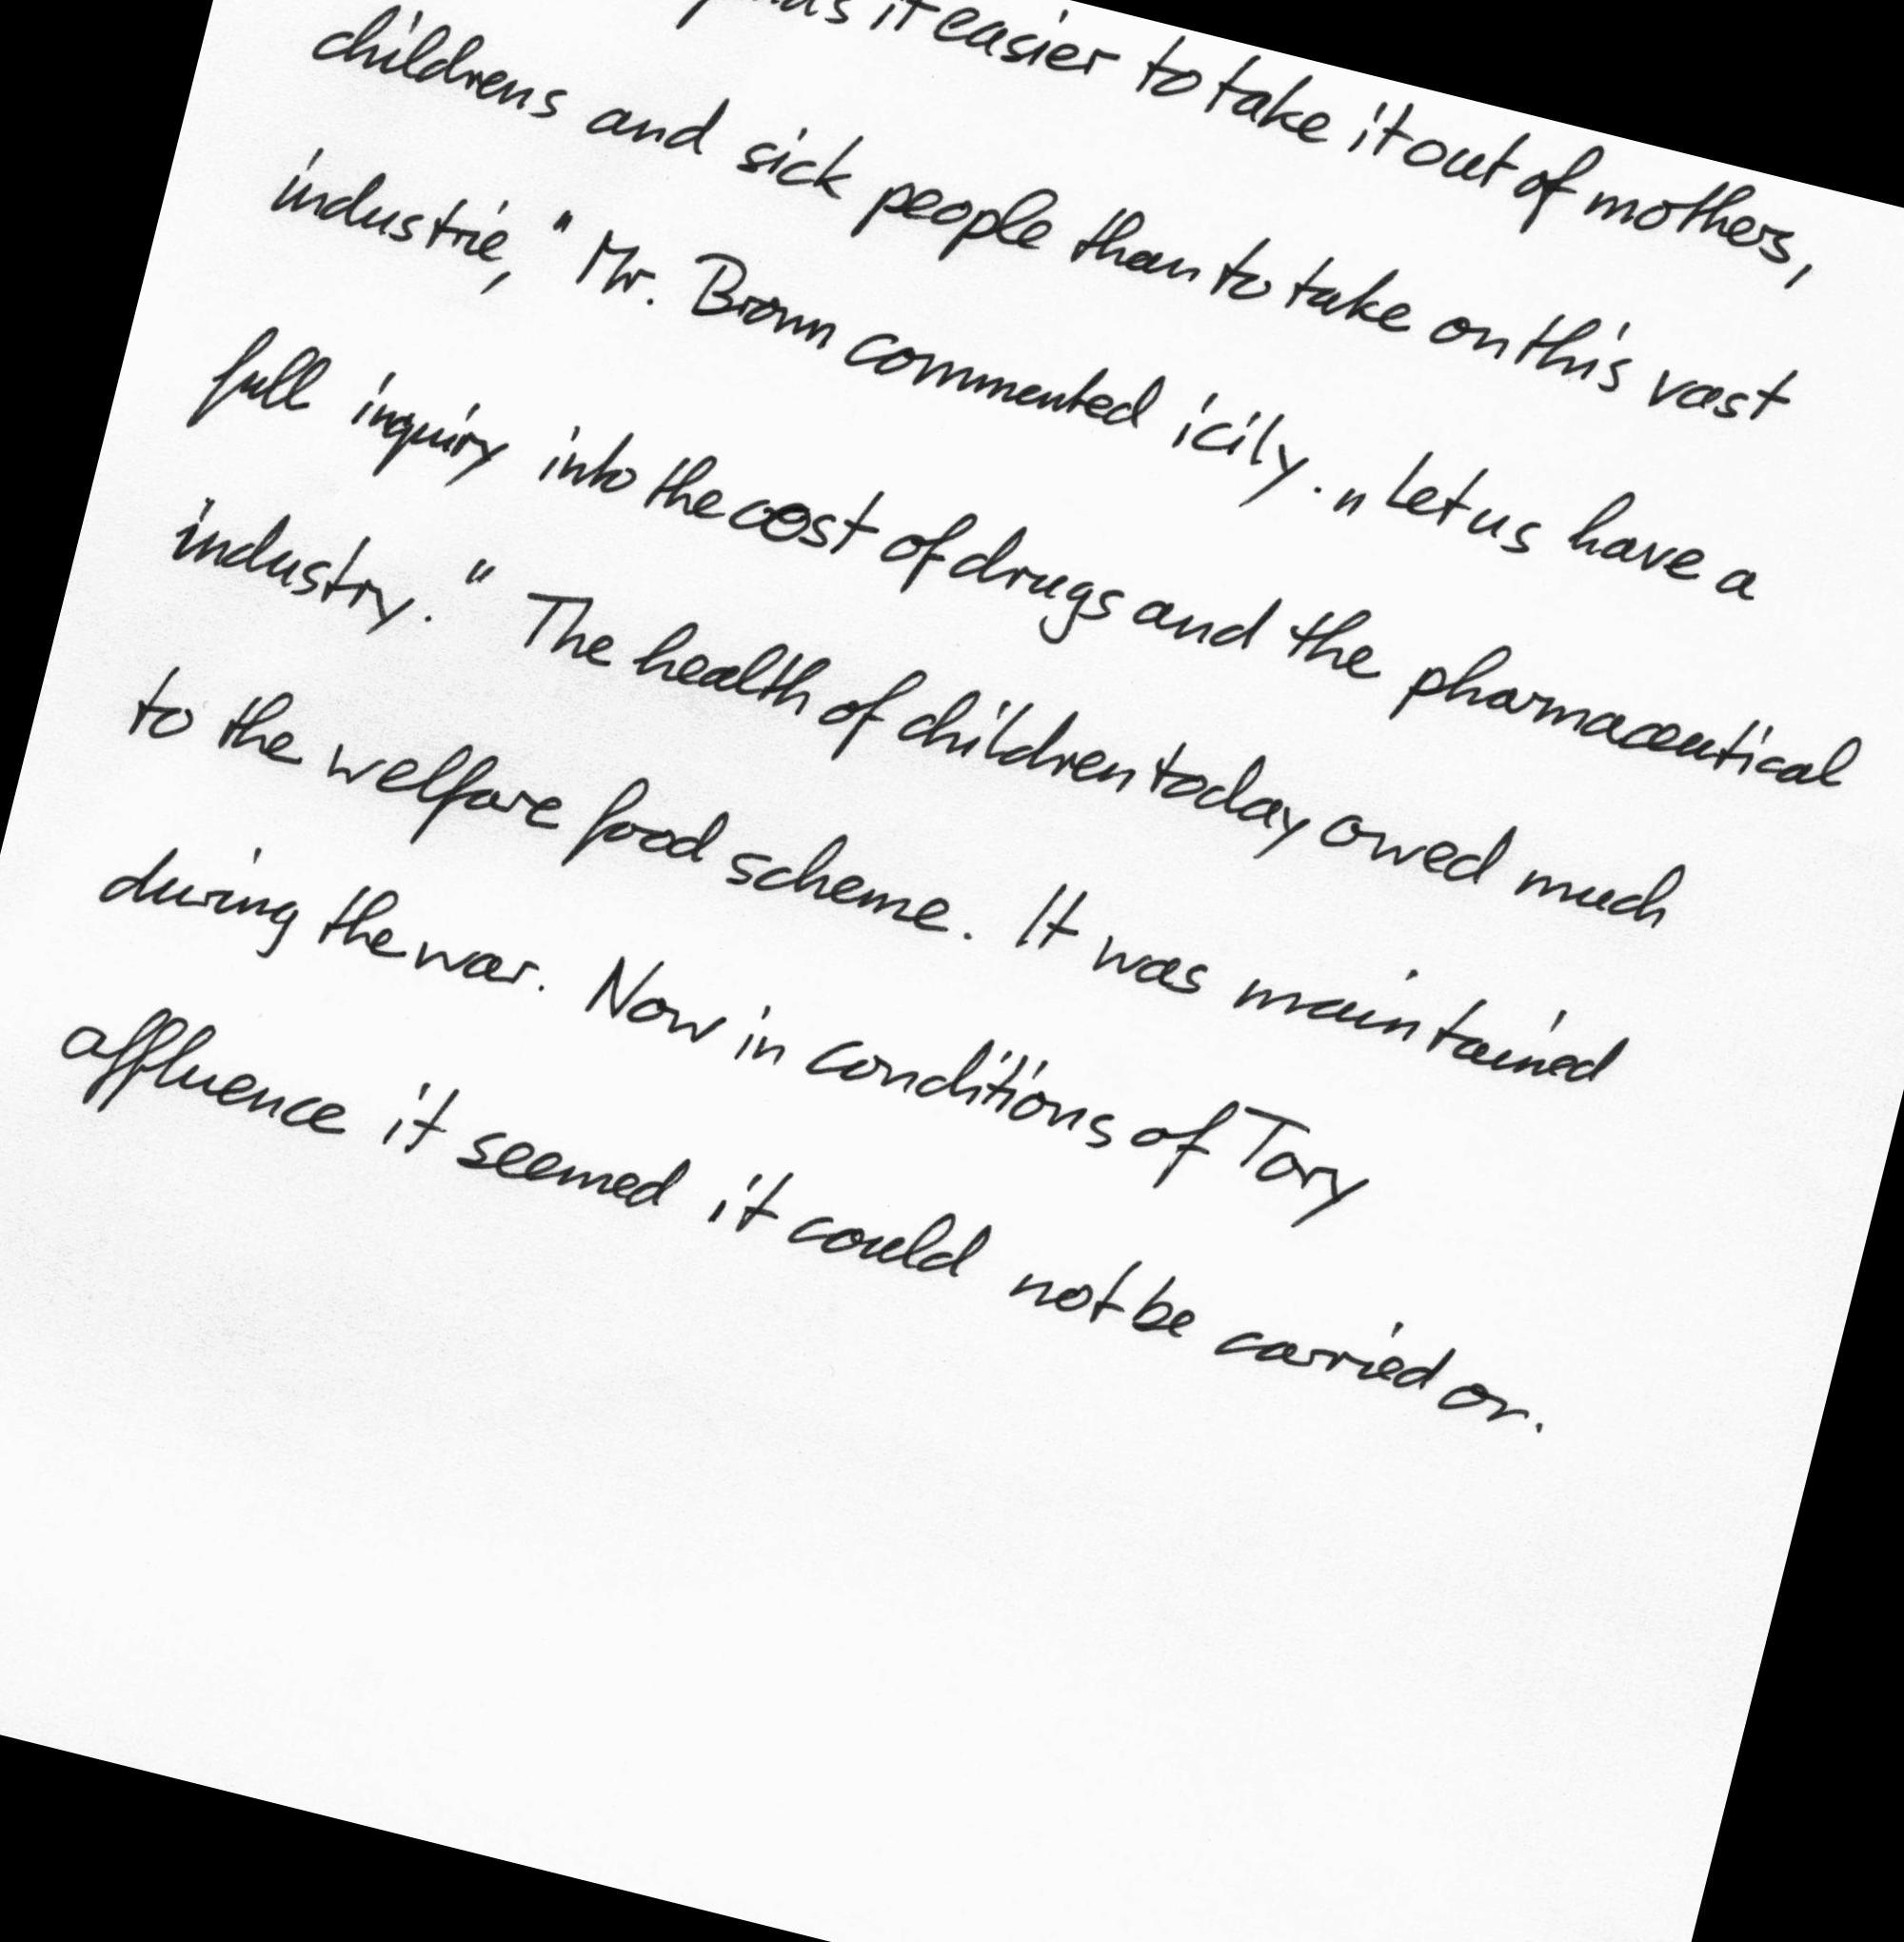 it easier to take it out of mothers,
childrens and sick people than to take on this vast
industrie," Mr. Brown commented icily. „Let us have a
full inquiry into the cost of drugs and the pharmaceutical
industry." The health of children today owed much
to the welfare food scheme. It was maintained
during the war. Now in conditions of Tory
affluence it seemed it could not be carried on.